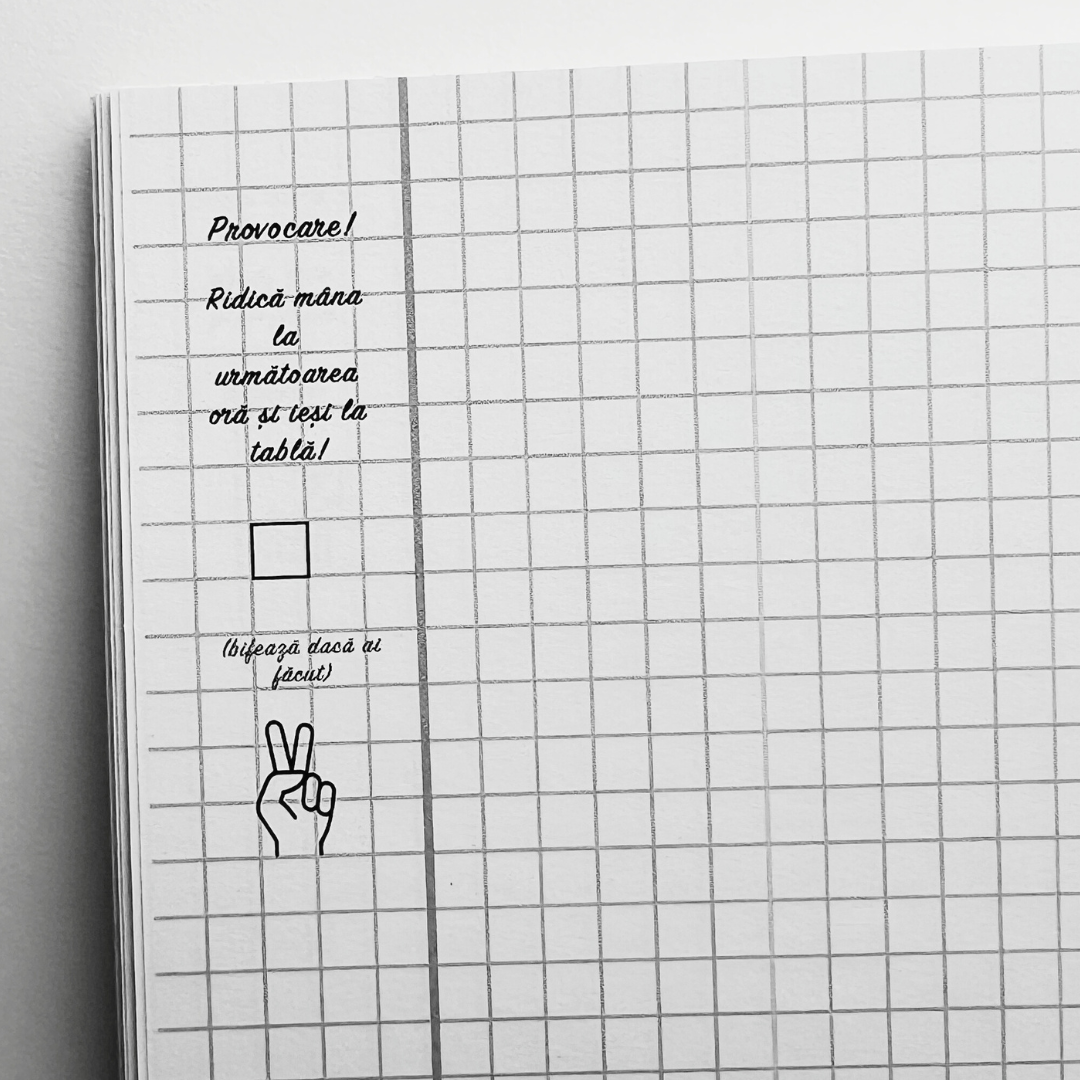 Provocare!
Ridică mâna
la
următoarea
oră și ieși la
tablă!
(bifează dacă ai
făcut)